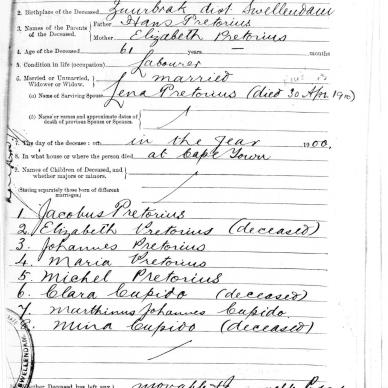 2. Birthplace of the Deceased. Zuurbrak dist Swellendam
3. Names of the Parents of the Deceased. Father Hans Pretorius
Mother Elizabeth Pretorius
4. Age of the Deceased. 61 years — months
5. Condition in life (occupation). Labourer
6. Married or Unmarried, Widower or Widow. married
(a) Name of Surviving Spouse. Lena Pretorius (died 30 Apr. 1910)
(b) Name or names and approximate dates of death of previous Spouse or Spouses.
7. The day of the decease: on in the year 1900.
8. In what house or where the person died at Cape Town
9. Names of Children of Deceased, and whether majors or minors.
(Stating separately those born of different marriages.)
1. Jacobus Pretorius
2. Elizabeth Pretorius (deceased)
3. Johannes Pretorius
4. Maria Pretorius
5. Michel Pretorius
6. Clara Cupido (deceased)
7. Marthinus Johannes Cupido
8. Mina Cupido (deceased)
SWELLENDAM
Whether Deceased has left any